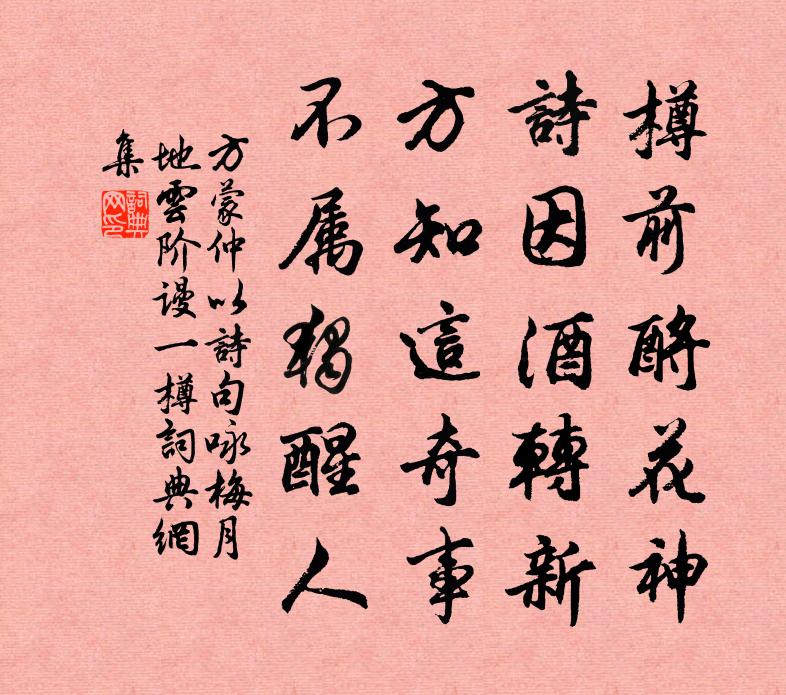 樽前酹花神
詩因酒轉新
方知這奇事
不属獨醒人
方蒙仲以詩句咏梅月
地雲阶谩一樽詞典網
集
詞典
网印